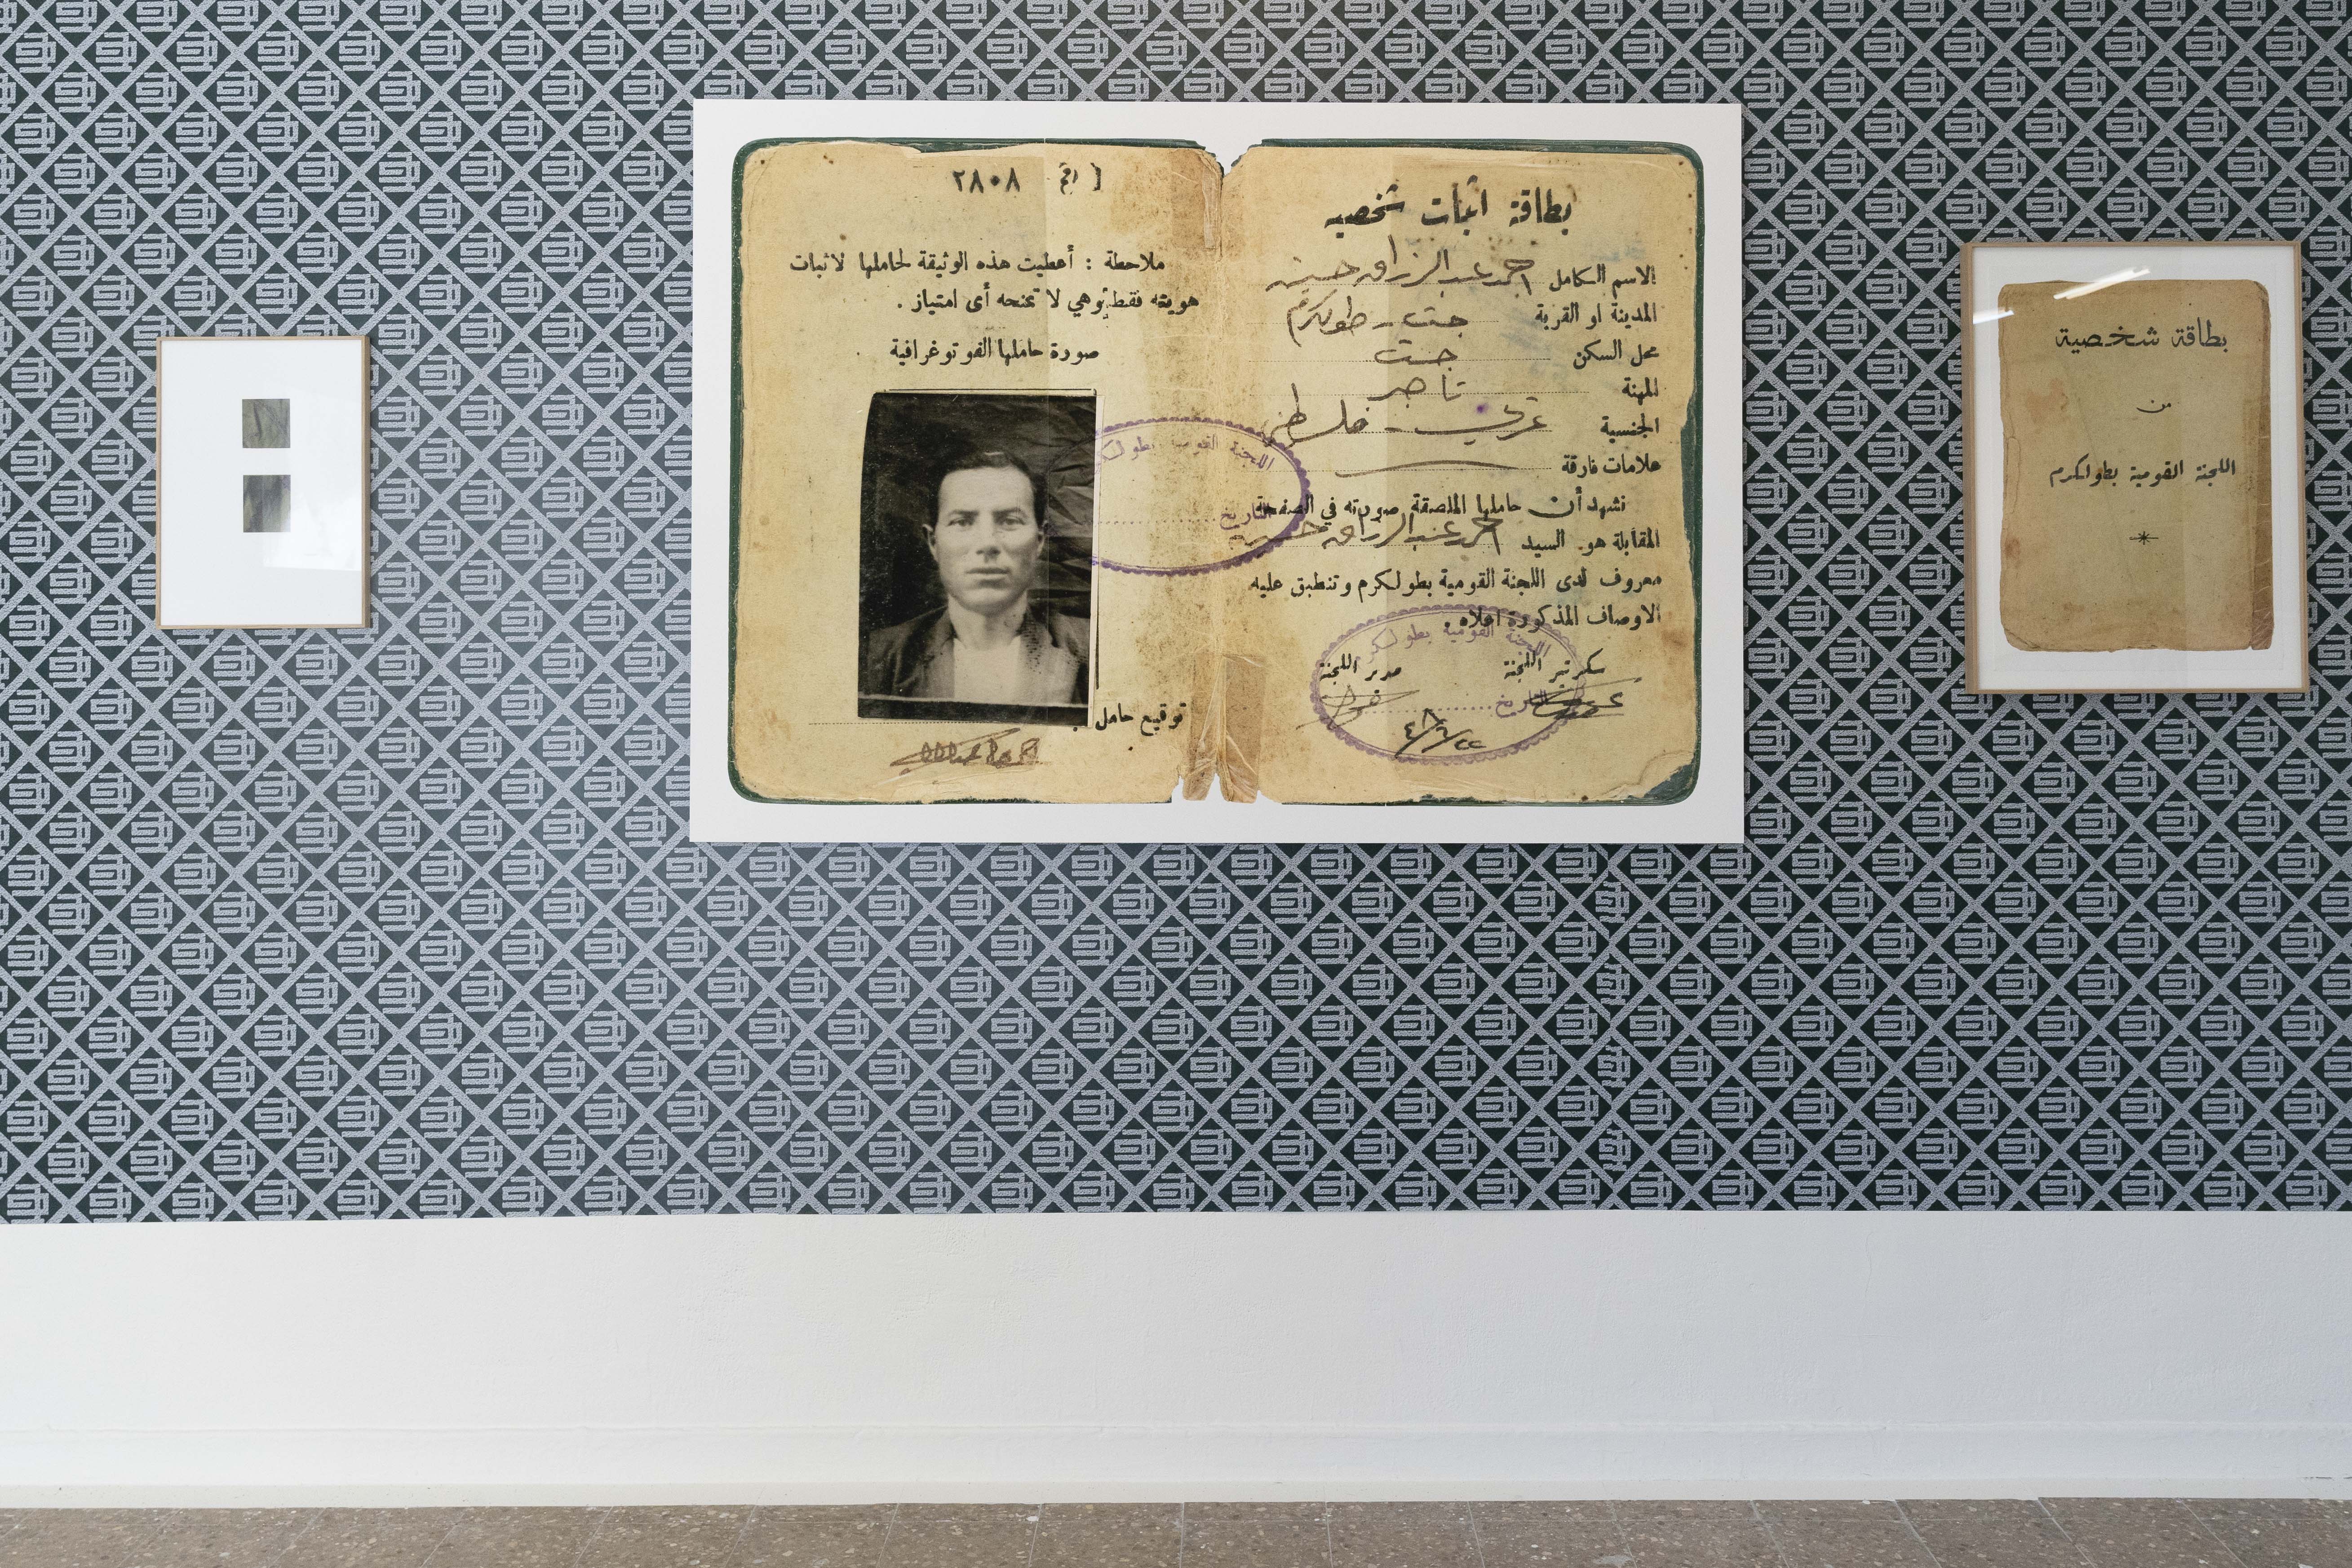 بطاقة اثبات شخصيه
الاسم الكامل احمد عبد الرزاق حسين
المدينة او القرية جت - طولكرم
محل السكن جت
المهنة تاجر
الجنسية عربي - فلسطيني
علامات فارقة
نشهد أن حاملها الملصقة صورته في الصفحة
المقابلة هو السيد احمد عبد الرزاق حسين
معروف لدى اللجنة القومية بطولكرم وتنطبق عليه
الاوصاف المذكورة اعلاه .
سكرتير اللجنة مدير اللجنة
اللجنة القومية بطولكرم
التاريخ
رقم ٢٨٠٨
ملاحظة : أعطيت هذه الوثيقة لحاملها لاثبات
هويته فقط وهي لا تمنحه أى امتياز .
صورة حاملها الفوتوغرافية
اللجنة القومية بطولكرم
التاريخ
توقيع حامل
بطاقة شخصية
من
اللجنة القومية بطولكرم